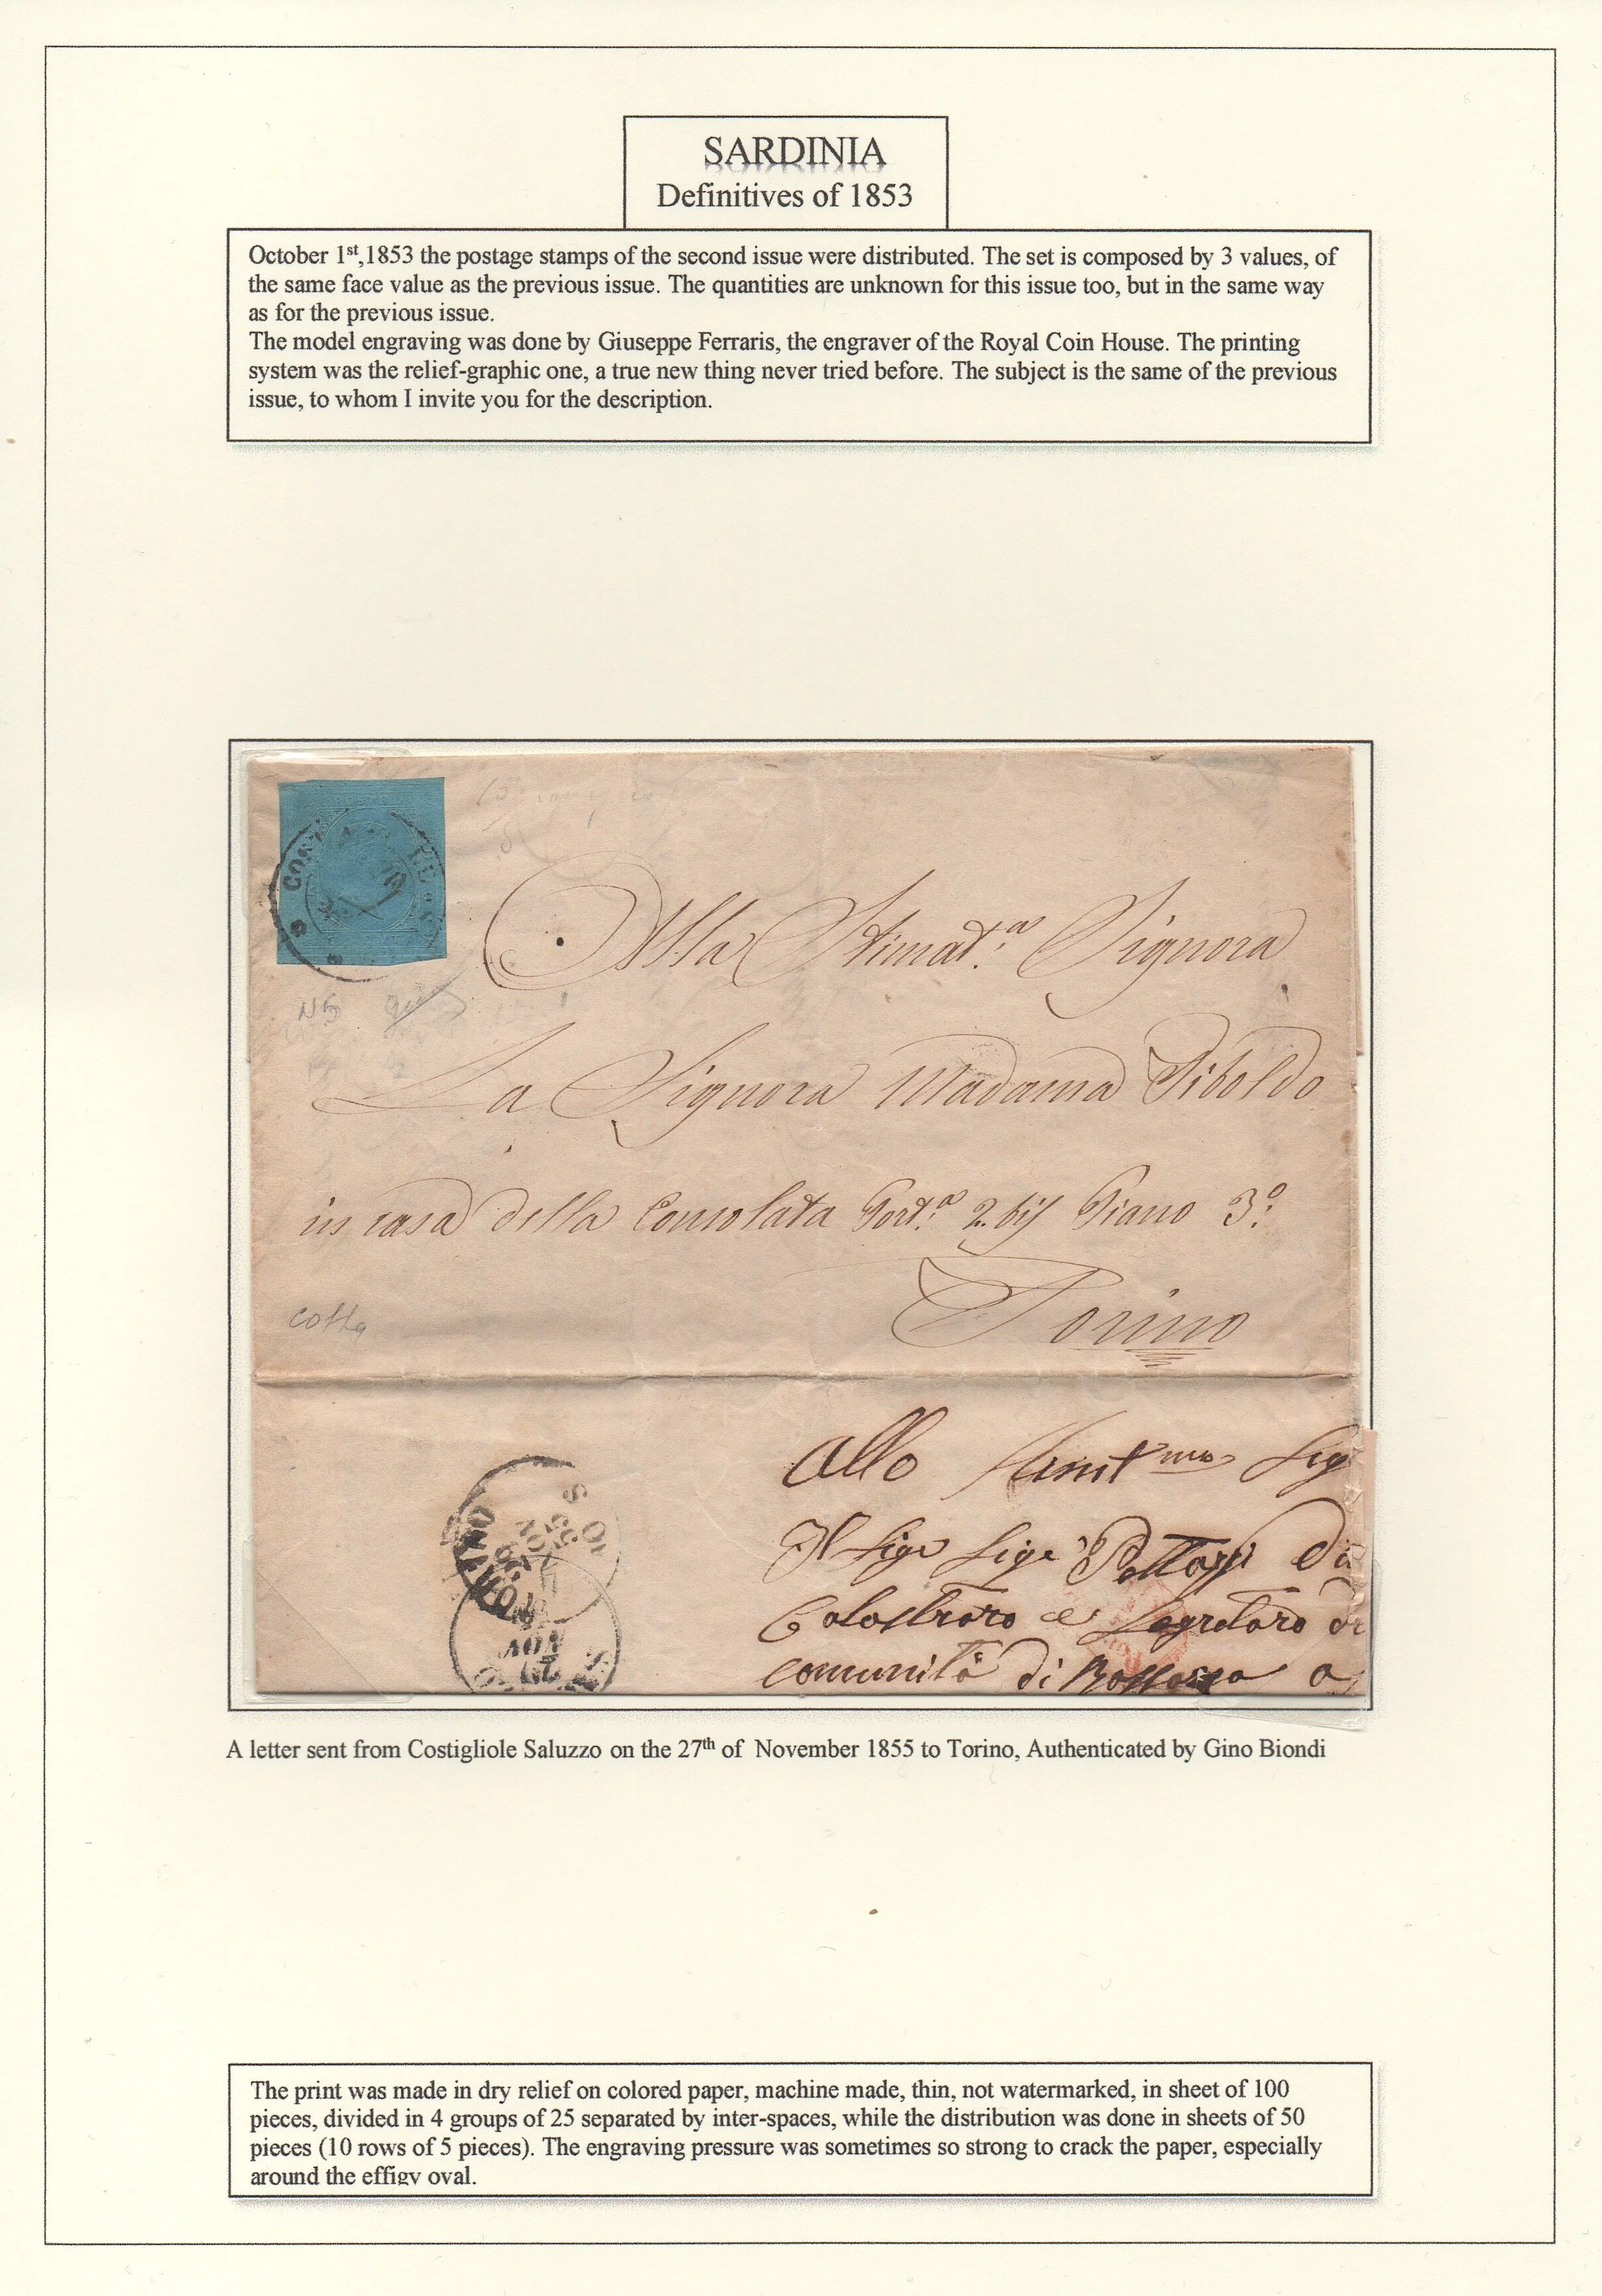 SARDINIA
Definitives of 1853
October 1st,1853 the postage stamps of the second issue were distributed. The set is composed by 3 values, of
the same face value as the previous issue. The quantities are unknown for this issue too, but in the same way
as for the previous issue.
The model engraving was done by Giuseppe Ferraris, the engraver of the Royal Coin House. The printing
system was the relief-graphic one, a true new thing never tried before. The subject is the same of the previous
issue, to whom I invite you for the description.
Alla Stimat.a Signora
La Signora Madama Riboldo
in casa della Consolata Port.a 2 bis Piano 3.o
Torino
N5
Allo
Il Sigr Sigr
e Segretaro
comunità di a
27
NOV
A letter sent from Costigliole Saluzzo on the 27th of November 1855 to Torino, Authenticated by Gino Biondi
The print was made in dry relief on colored paper, machine made, thin, not watermarked, in sheet of 100
pieces, divided in 4 groups of 25 separated by inter-spaces, while the distribution was done in sheets of 50
pieces (10 rows of 5 pieces). The engraving pressure was sometimes so strong to crack the paper, especially
around the effigy oval.